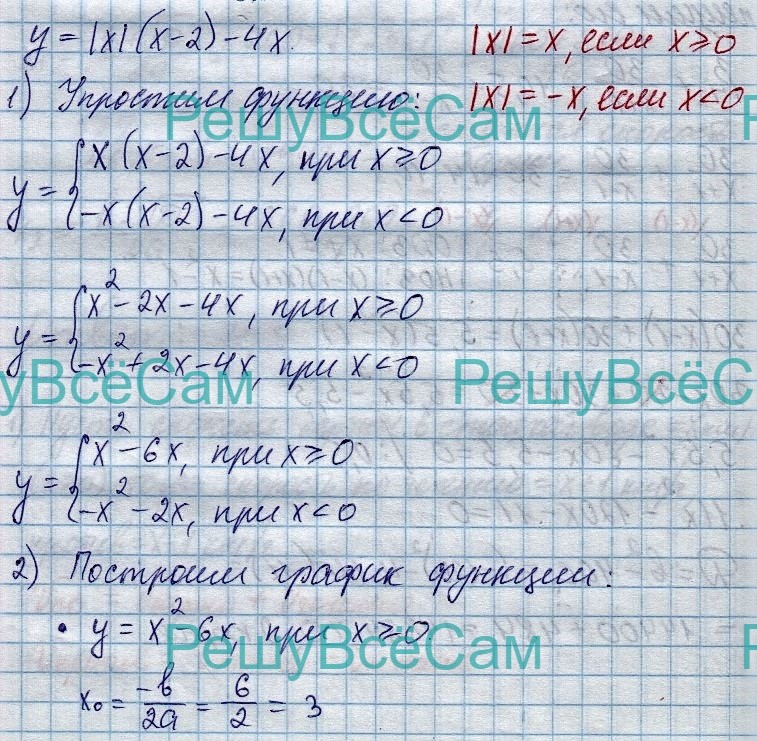 y = |x|(x-2)-4x. |x| = x, если x ≥ 0
1) Упростим функцию: |x| = -x, если x < 0
РешуВсёСам
y = { x(x-2)-4x, при x ≥ 0
-x(x-2)-4x, при x < 0
y = { x²-2x-4x, при x ≥ 0
-x²+2x-4x, при x < 0
уВсёСам РешуВсёС
y = { x²-6x, при x ≥ 0
-x²-2x, при x < 0
2) Построим график функции:
• y = x²-6x, при x ≥ 0
РешуВсёСам
x₀ = -b/2a = 6/2 = 3